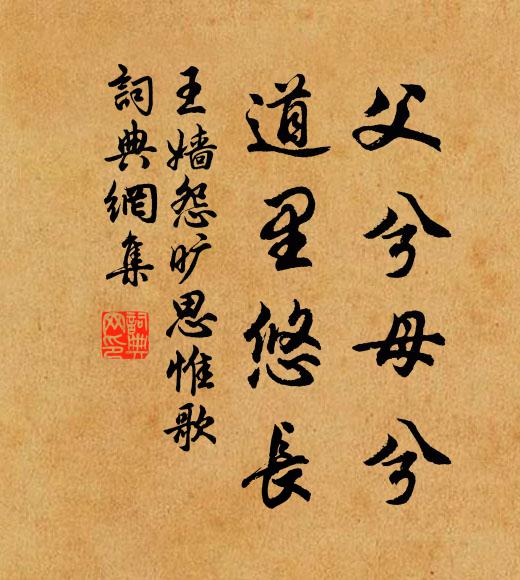 父兮母兮
道里悠長
王嬙怨旷思惟歌
詞典網集
詞典网印